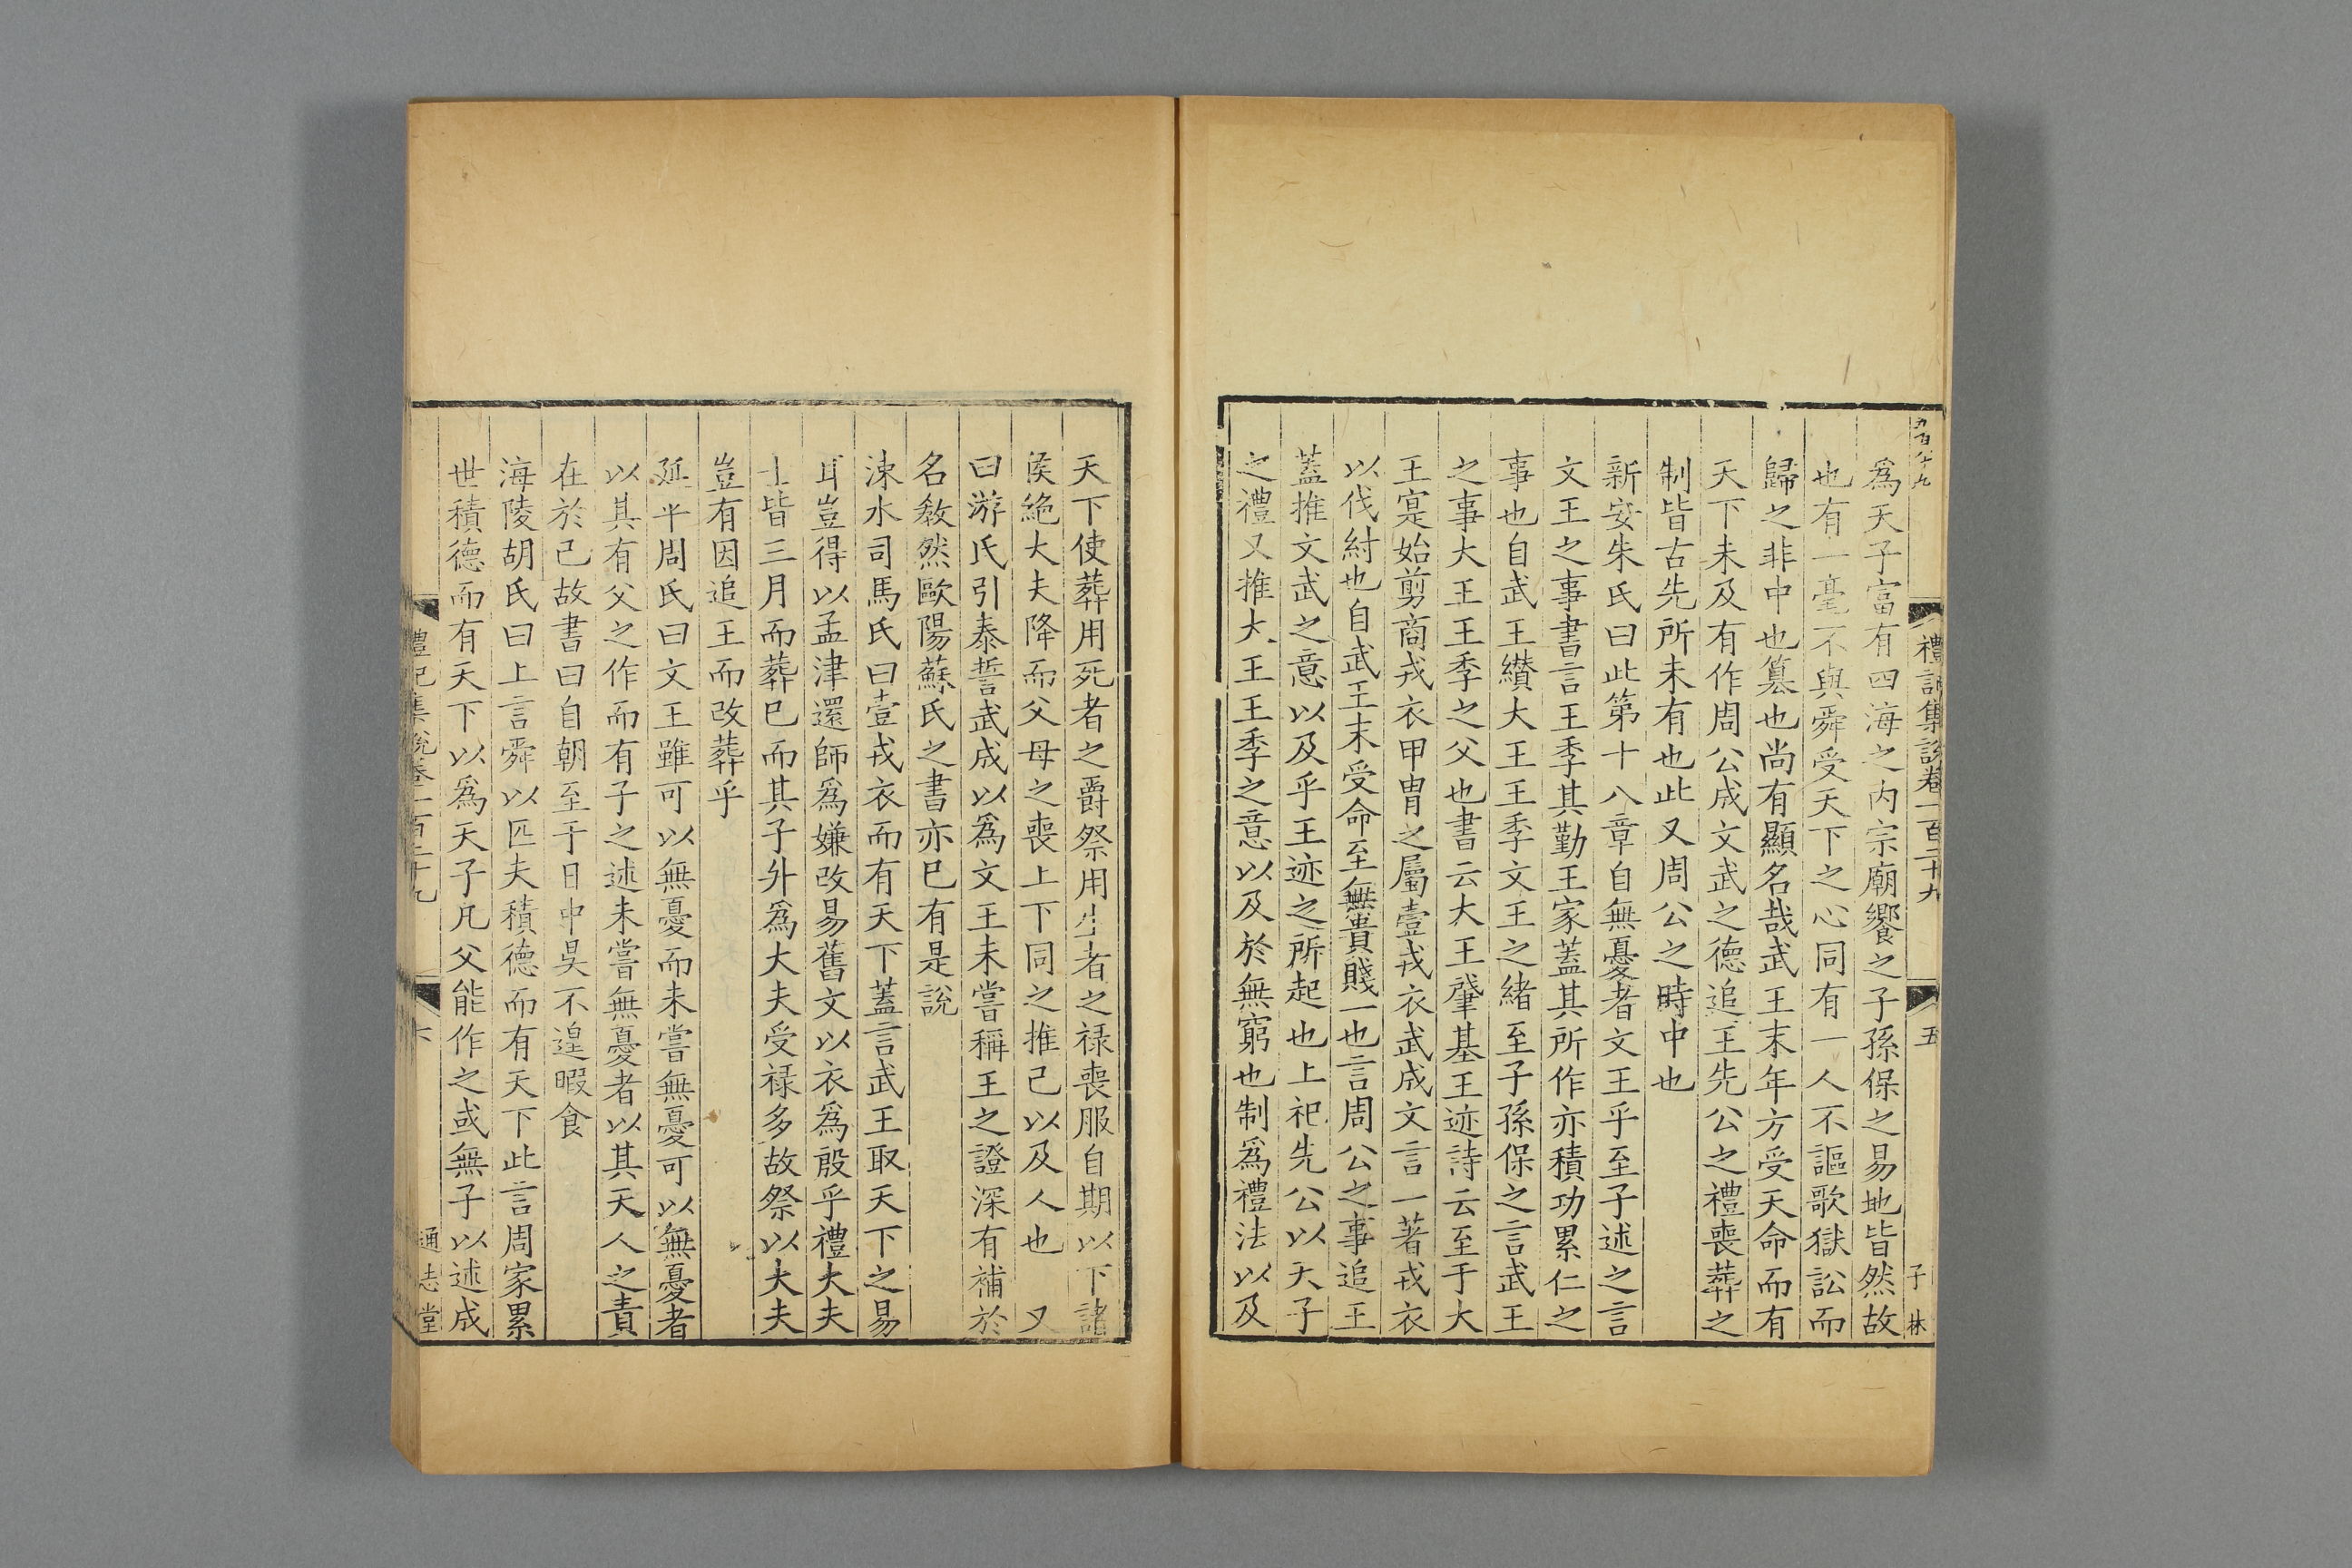 禮記集說卷一百二十九
五
子林
爲天子富有四海之内宗廟饗之子孫保之易地皆然故
也有一毫不與舜受天下之心同有一人不謳歌獄訟而
歸之非中也簒也尚有顯名哉武王末年方受天命而有
天下未及有作周公成文武之德追王先公之禮喪葬之
制皆古先所未有也此又周公之時中也
新安朱氏曰此第十八章自無憂者文王乎至子述之言
文王之事書言王季其勤王家蓋其所作亦積功累仁之
事也自武王纉大王王季文王之緒至子孫保之言武王
之事大王王季之父也書云大王肇基王迹詩云至于大
王寔始剪商戎衣甲冑之屬壹戎衣武成文言一著戎衣
以伐紂也自武王末受命至無貴賤一也言周公之事追王
蓋推文武之意以及乎王迹之所起也上祀先公以天子
之禮又推大王王季之意以及於無窮也制爲禮法以及
天下使葬用死者之爵祭用生者之祿喪服自期以下諸
侯絶大夫降而父母之喪上下同之推己以及人也 又
曰游氏引泰誓武成以爲文王未嘗稱王之證深有補於
名敎然歐陽蘇氏之書亦已有是說
涑水司馬氏曰壹戎衣而有天下蓋言武王取天下之易
耳豈得以孟津還師爲嫌改易舊文以衣爲殷乎禮大夫
士皆三月而葬已而其子外爲大夫受祿多故祭以大夫
豈有因追王而改葬乎
延平周氏曰文王雖可以無憂而未嘗無憂可以無憂者
以其有父之作而有子之述未嘗無憂者以其天人之責
在於己故書曰自朝至于日中昃不遑暇食
海陵胡氏曰上言舜以匹夫積德而有天下此言周家累
世積德而有天下以爲天子凡父能作之或無子以述成
禮記集說卷一百二十九
六
通志堂